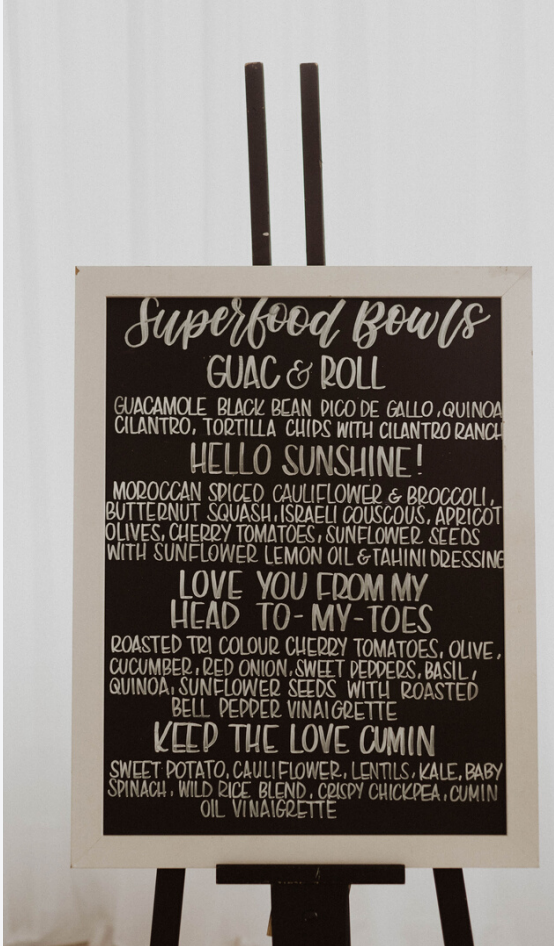 Superfood Bowls
GUAC & ROLL
GUACAMOLE BLACK BEAN PICO DE GALLO, QUINOA
CILANTRO, TORTILLA CHIPS WITH CILANTRO RANCH
HELLO SUNSHINE!
MOROCCAN SPICED CAULIFLOWER & BROCCOLI,
BUTTERNUT SQUASH, ISRAELI COUSCOUS, APRICOT
OLIVES, CHERRY TOMATOES, SUNFLOWER SEEDS
WITH SUNFLOWER LEMON OIL & TAHINI DRESSING
LOVE YOU FROM MY
HEAD TO-MY-TOES
ROASTED TRI COLOUR CHERRY TOMATOES, OLIVE,
CUCUMBER, RED ONION, SWEET PEPPERS, BASIL,
QUINOA, SUNFLOWER SEEDS WITH ROASTED
BELL PEPPER VINAIGRETTE
KEEP THE LOVE CUMIN
SWEET POTATO, CAULIFLOWER, LENTILS, KALE, BABY
SPINACH, WILD RICE BLEND, CRISPY CHICKPEA, CUMIN
OIL VINAIGRETTE